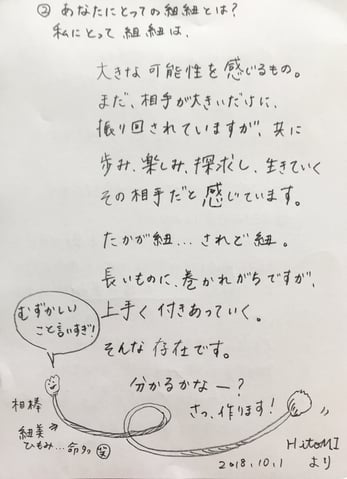 ② あなたにとっての組紐とは？
私にとって 組紐は、
大きな可能性を感じるもの。
まだ、相手が大きいだけに、
振り回されていますが、共に
歩み、楽しみ、探求し、生きていく
その相手だと感じています。
たかが紐...されど紐。
長いものに、巻かれがちですが、
上手く付きあっていく。
そんな存在です。
分かるかなー？
さっ、作ります！
むずかしい
こと言いすぎ！
相棒
紐美
ひもみ...命名 笑
HitoMI
2018.10.1 より